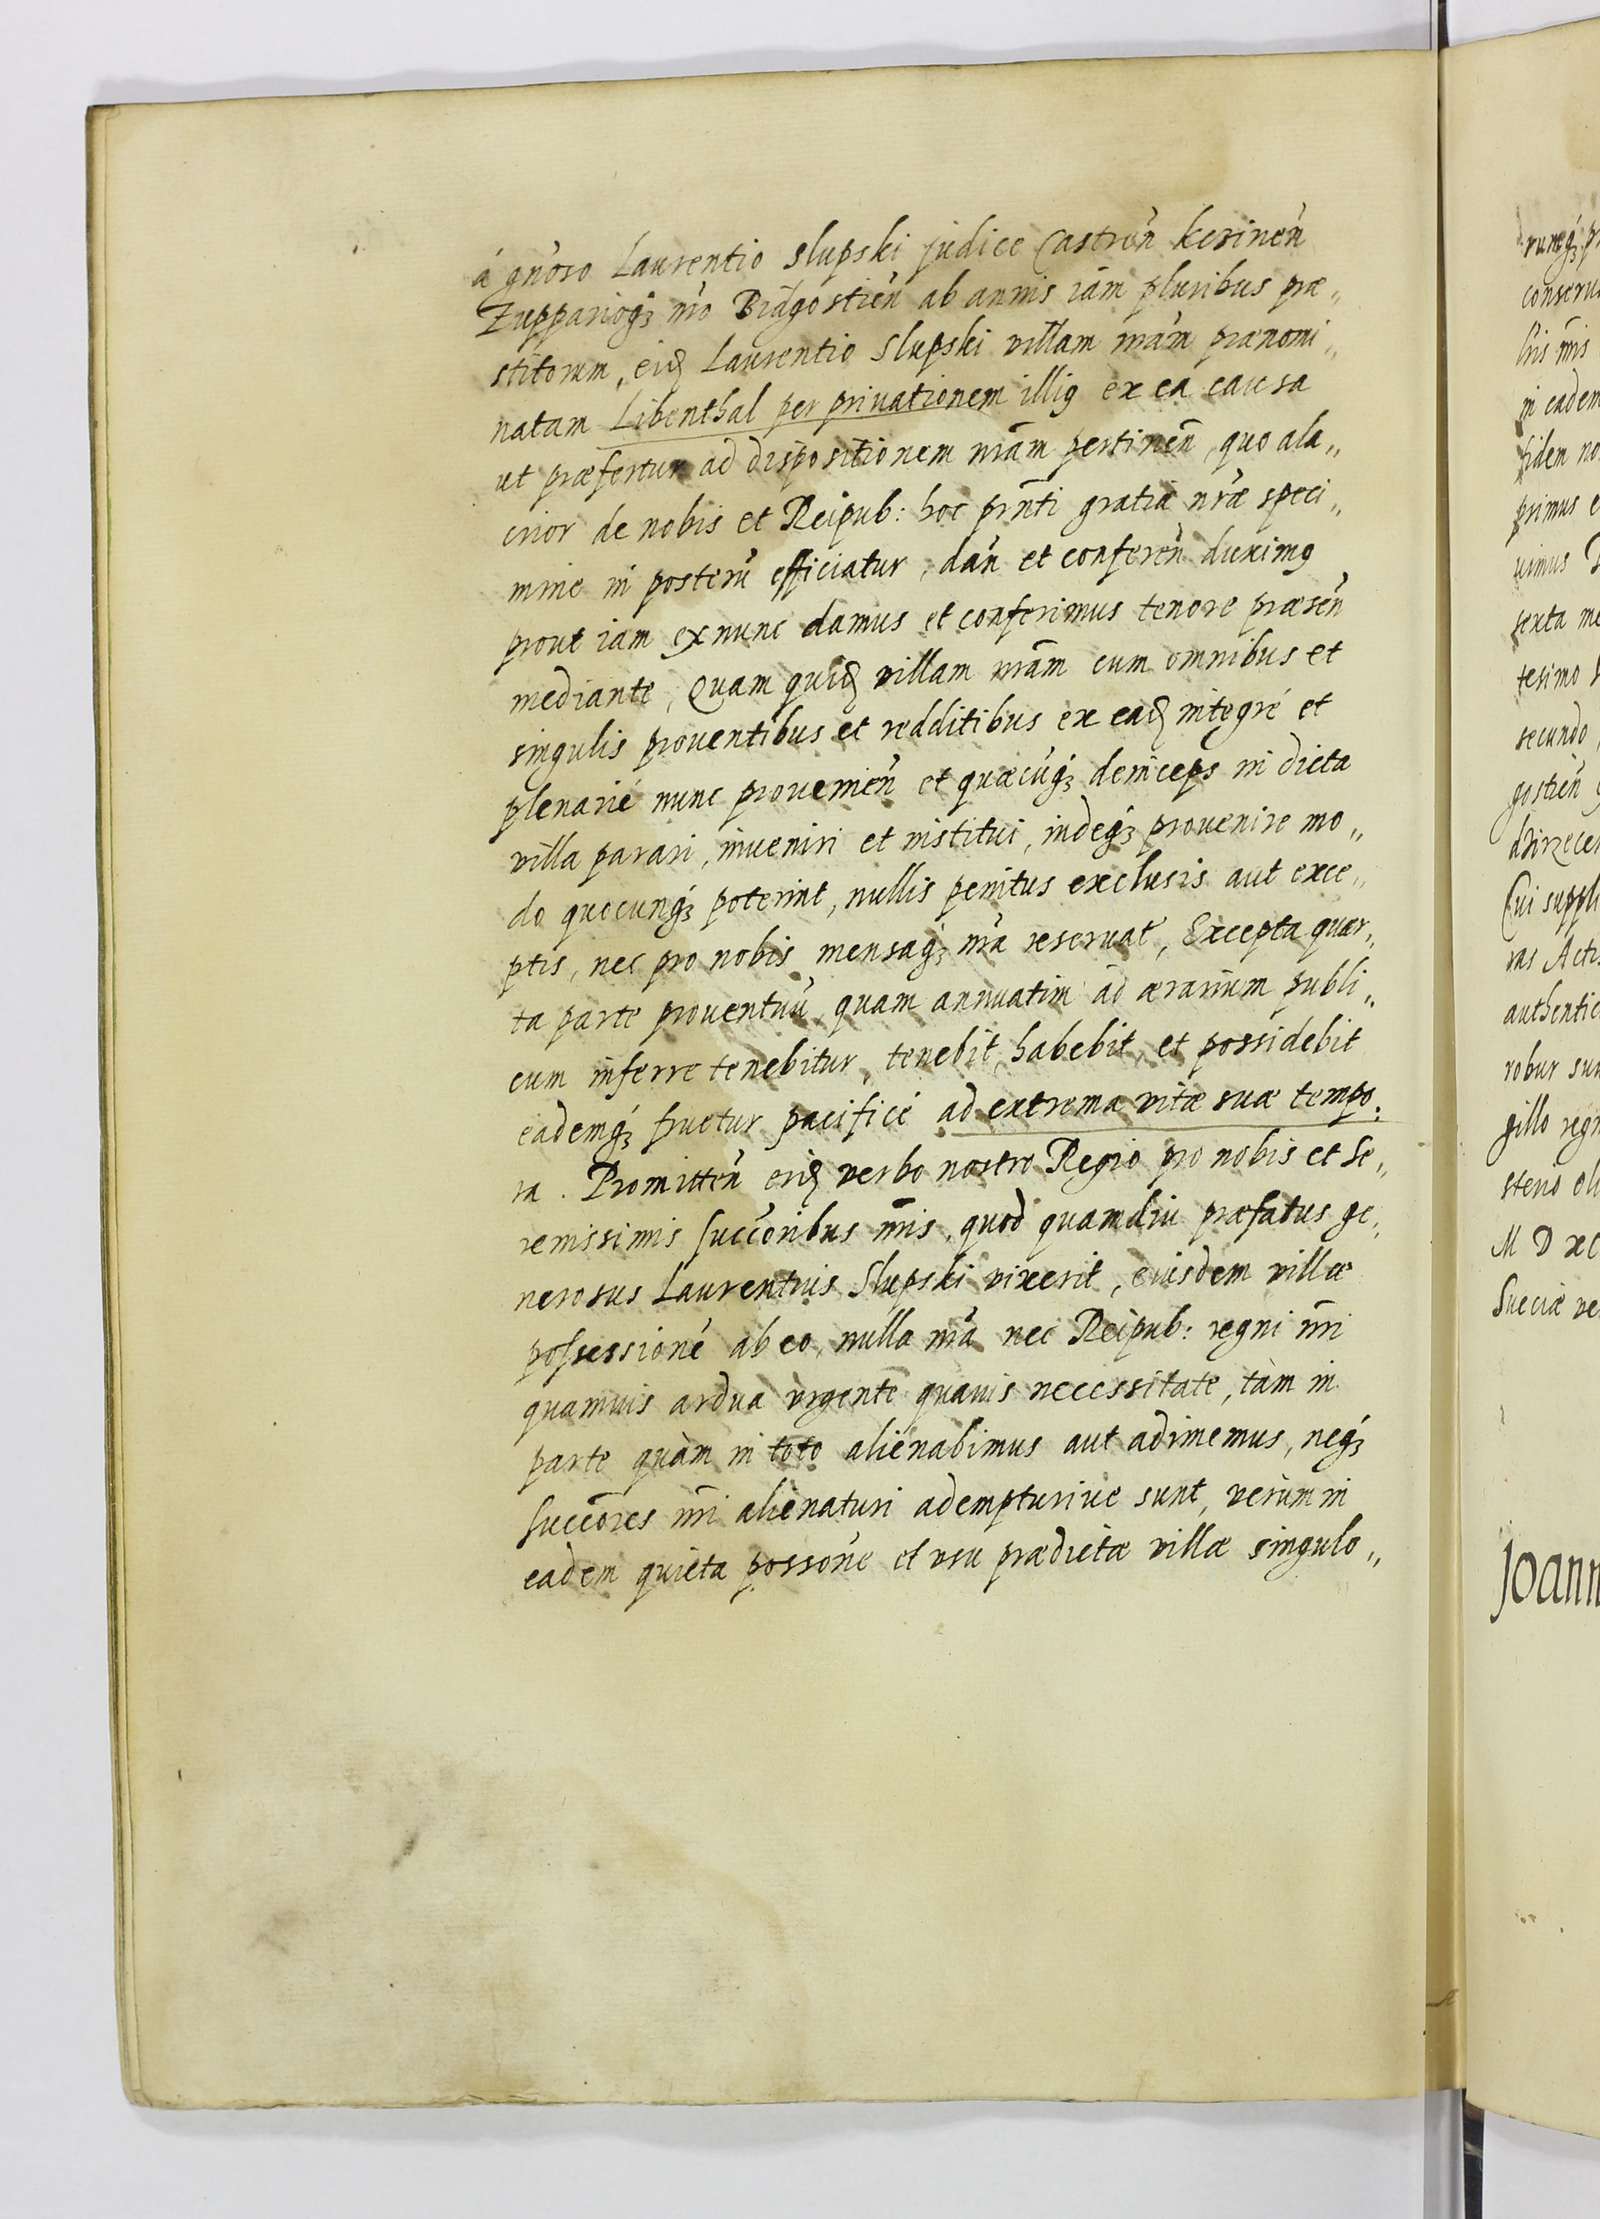 á gn̄oso Laurentio Slupski judice Castren̄ Kcsinen̄
Zupparioq₃ nr̄o Bidgostien̄ ab annis iam pluribus præ„
stitorum, eid Laurentio Slupski villam nr̄am prænomi„
natam Libenthal per priuationem illig ex ea causa
ut præfertur ad dispositionem nr̄am pertinen̄, quo ala„
crior de nobis et Reipub: hoc pr̄nti gratiæ nr̄æ speci„
mine in posterū efficiatur, dan̄ et conferen̄ duximg
prout iam ex nunc damus et conferimus tenore præsen̄
mediante, Quam quid villam nr̄am cum omnibus et
singulis prouentibus et redditibus ex ead integré et
plenarié nunc prouenien̄ et quæcūq₃ deinceps in dicta
villa parari, inueniri et institui, indeq₃ prouenire mo„
do quocunq₃ poterint, nullis penitus exclusis aut exce„
ptis, nec pro nobis mensaq₃ nr̄a reseruat, Excepta quar„
ta parte prouentuū quam annuatim ad ærarium publi„
cum inferre tenebitur, tenebit, habebit, et possidebit
eademq₃ fruetur pacificé ad extrema vitæ suæ tempo„
ra. Promitten̄ eid verbo nostro Regio pro nobis et Se„
renissimis succ̄oribus nr̄is, quod quamdiu præfatus ge„
nerosus Laurentius Slupski vixerit, eiusdem villæ
possessionē ab eo, nulla nr̄a nec Reipub: regni nr̄i
quamuis ardua vrgente quauis necessitate, tàm in
parte quàm in toto alienabimus aut adimemus, neq₃
succ̄ores nr̄i alienaturi adempturiue sunt, verùm in
eadem quieta posson̄e et vsu prædictæ villæ singulo„
runq₃ pr
conseru
in eadem
fidem no
primus e
uimus
sexta me
tesimo
secundo
gostien̄
Cui suppli
ras Acti
authentic
robur su
gillo regn
M D xc
Sueciæ ve
Joann